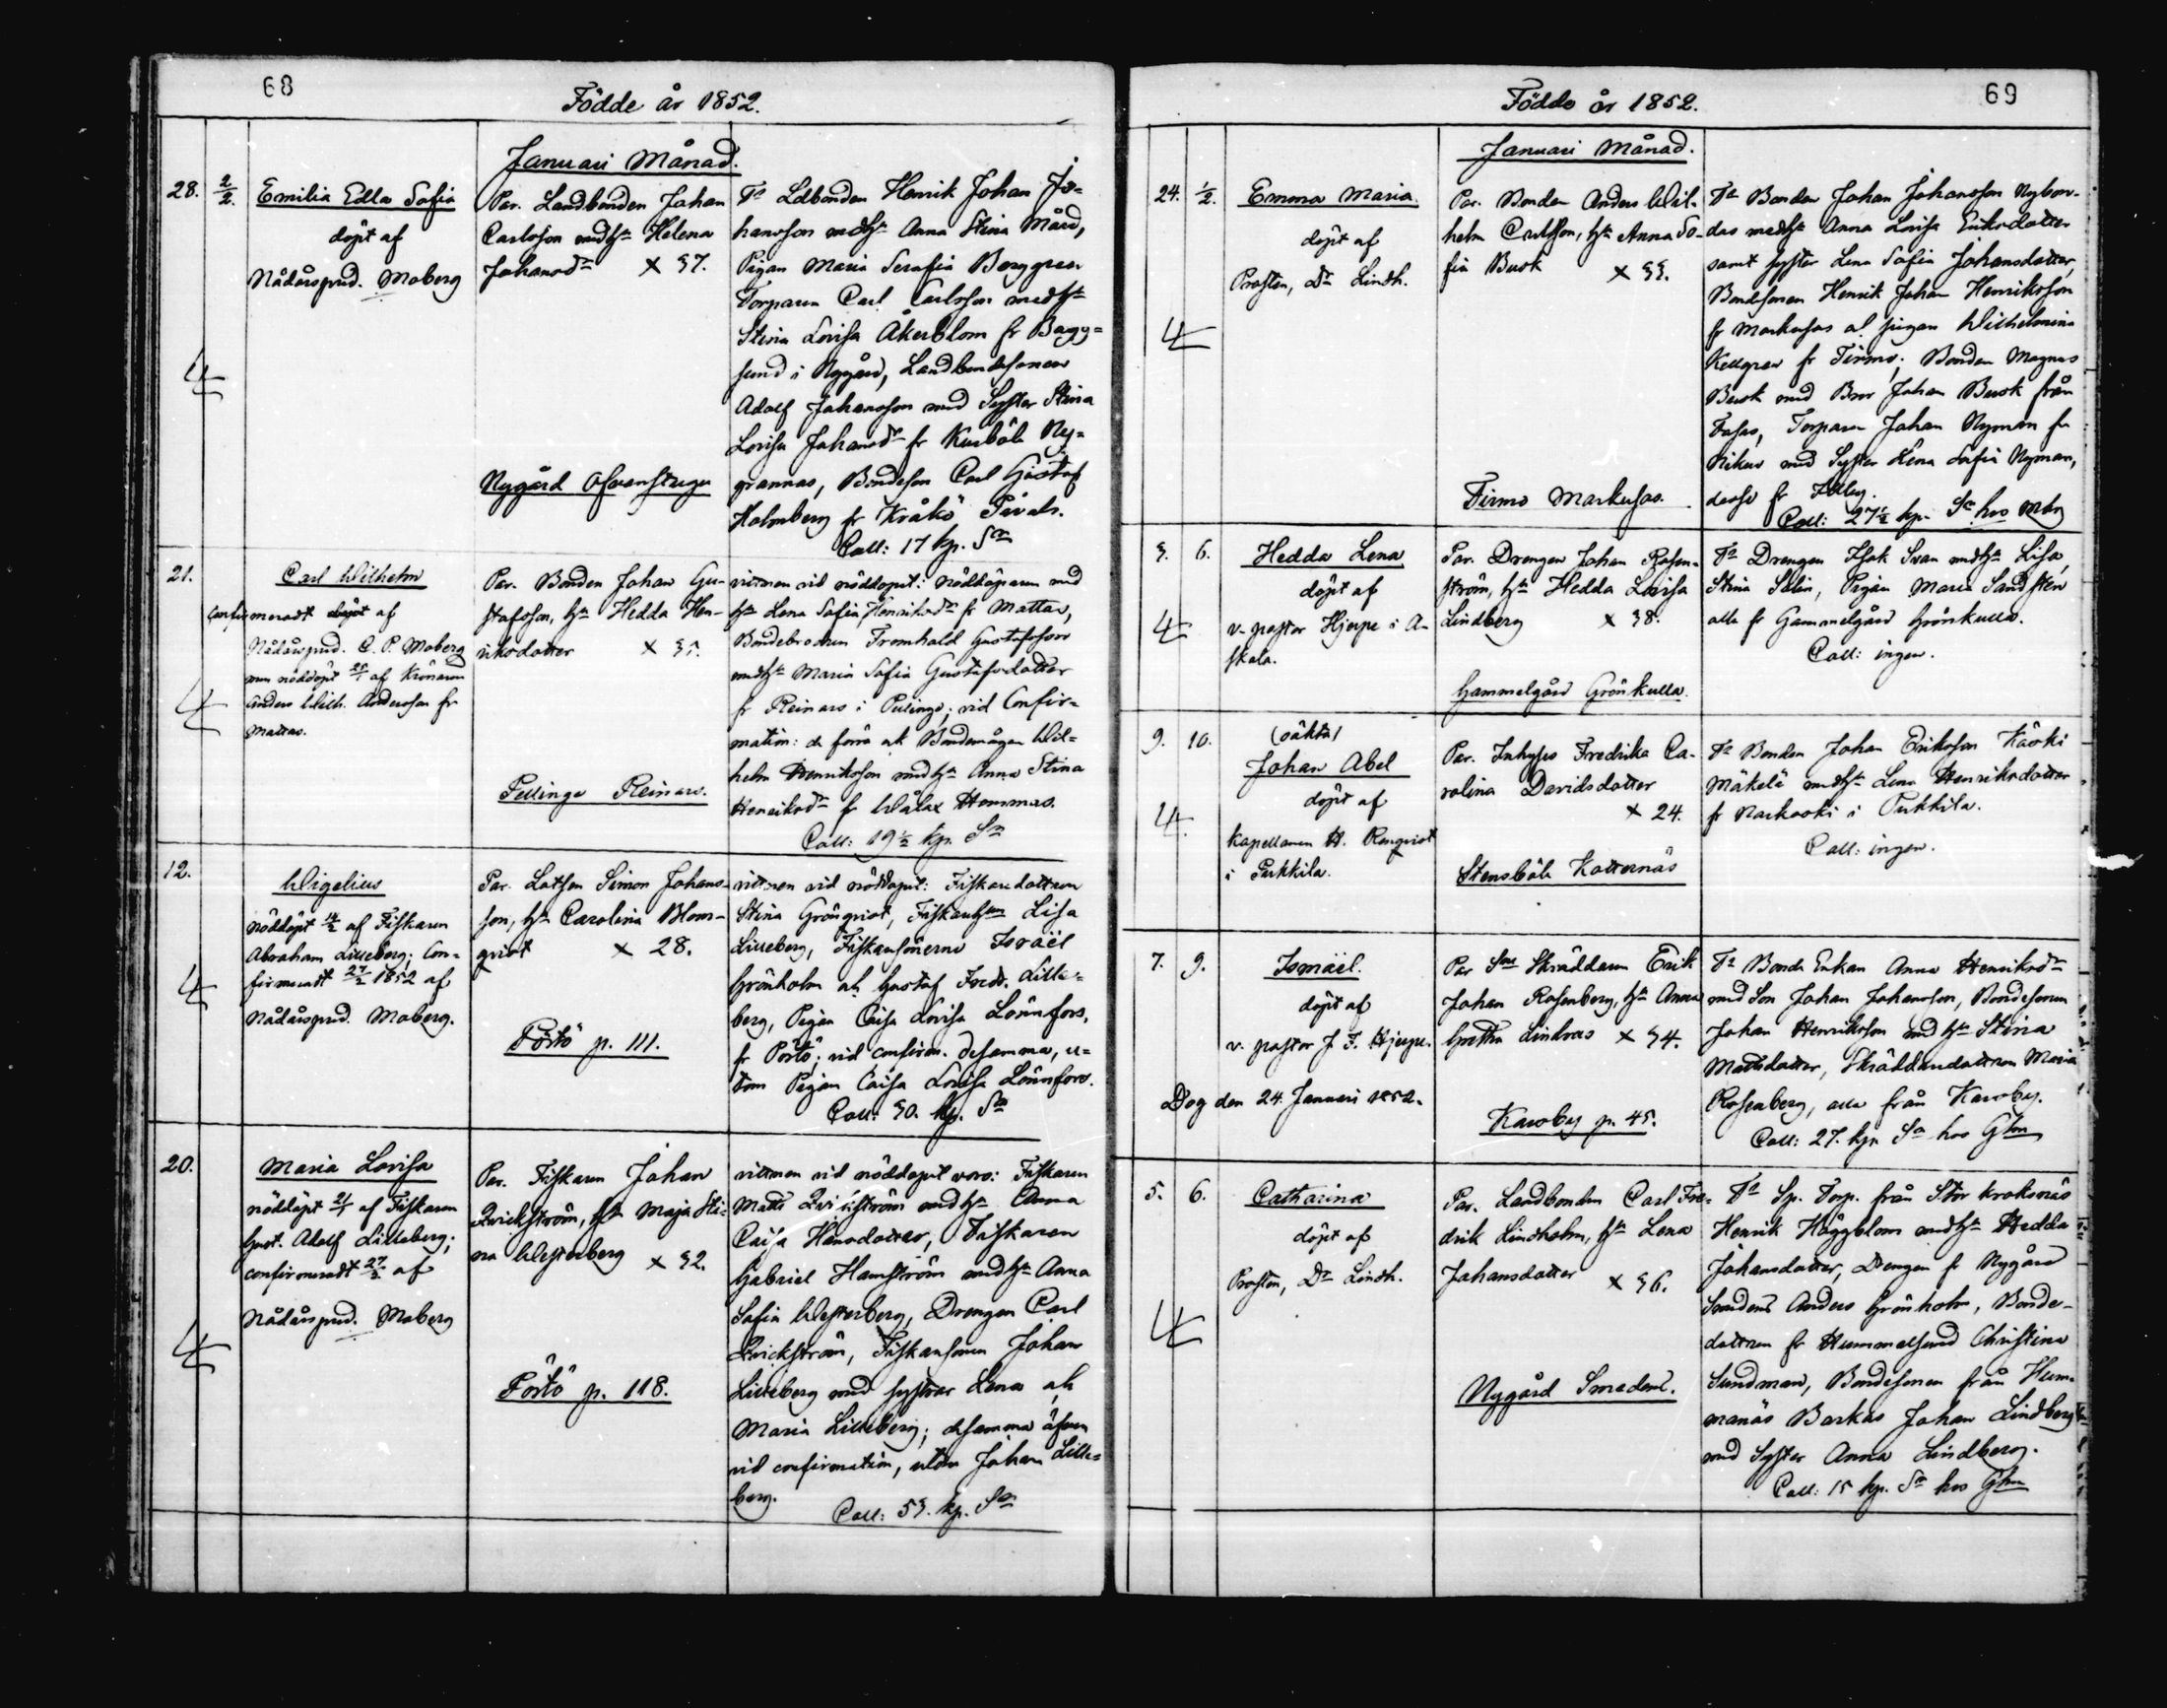 68
Födde år 1852.
Januari Månad.
28. 2/2. Emilia Edla Sofia
döpt af
Nådårspred. Moberg
Par. Landbonden Johan
Carlsson med h. Helena
Johansdr x 37.
Nygård Ofvanstuga
Fr Ldbonden Henrik Johan Jo=
hansson med h. Anna Stina Mård,
Pigan Maria Serafia Berggren
Torparen Carl Carlsson med h.
Stina Lovisa Åkerblom fr Bagg=
sund i Nygård, Landbondsonen
Adolf Johansson med Syster Stina
Lovisa Johansdr fr Kurböle Ny=
grannas, Bondeson Carl Gustaf
Holmberg fr Kråkö Pävals.
Coll: 17 kp. Sr
21. Carl Wilhelm
confirmeradt döpt af
Nådårspred. C. P. Moberg
men nöddöpt 25/1 af Kronaren
Anders Wilh. Andersson fr
Mattas.
Par. Bonden Johan Gu-
stafsson, h. Hedda Hen-
riksdotter x 35.
Pellinge Reinars.
vittnen vid nöddopet: nöddöparen med
h. Lena Sofia Henriksdr fr Mattas,
Bondebrodren Fromhold Gustafsson
med h. Maria Sofia Gustafsdotter
fr Reinars i Pellinge; vid Confir=
mation: de förra ok Bondemågen Wil=
helm Henriksson med h. Anna Stina
Henriksdr fr Wålax Hommas.
Coll: 19½ kp. Sr
12. Wigelius
nöddöpt 14/2 af Fiskaren
Abraham Lilleberg; Con=
firmeradt 27/2 1852 af
Nådårspred. Moberg.
Par. Lotsen Simon Johans-
son, h. Carolina Blom-
qvist x 28.
Pörtö p. 111.
vittnen vid nöddopet: Fiskaredottren
Stina Grönqvist, Fiskareh. Lisa
Lilleberg, Fiskaresönerne Israël
Grönholm ok Gustaf Fredr. Lille=
berg, Pigan Caisa Lovisa Lönnfors,
fr Pörtö; vid confirm. desamma, u=
tom Pigan Caisa Lovisa Lönnfors.
Coll: 30. kp. Sr
20. Maria Lovisa
nöddöpt 21/1 af Fiskaren
Gust. Adolf Lilleberg;
confirmeradt 27/2 af
Nådårspred. Moberg
Par. Fiskaren Johan
Qvickström, h. Maja Sti=
na Westerberg x 32.
Pörtö p. 118.
vittnen vid nöddopet voro: Fiskaren
Matts Qvickström med h. Anna
Caisa Hansdotter, Fiskaren
Gabriel Hamström med h. Anna
Sofia Westerberg, Drengen Carl
Qvickström, Fiskaresonen Johan
Lilleberg med systrar Lena ok
Maria Lilleberg; desamma äfven
vid confirmation, utom Johan Lille=
berg.
Coll: 53. kp. Sr
69
Födde år 1852.
Januari Månad.
24. 1/2. Emma Maria.
döpt af
Prosten, Dr Lindh.
Par. Bonden Anders Wil-
helm Carlsson, h. Anna So-
fia Busk x 33.
Tirmo Markusas.
Fr Bonden Johan Johansson Nybon-
das med h. Anna Lovisa Eriksdotter
samt syster Lena Sofia Johansdotter,
Bondesonen Henrik Johan Henriksson
fr Markusas ok pigan Wilhelmina
Kellgren fr Tirmo; Bonden Magnus
Busk med Bror Johan Busk från
Fasas, Torparen Johan Nyman fr
Nikus med Syster Lena Sofia Nyman,
derst. fr
Coll: 27½ kp. Sr hos Mbg
3. 6. Hedda Lena
döpt af
v. pastor Hjerpe i A-
skola.
Par. Drengen Johan Rosen-
ström, h. Hedda Lovisa
Lindberg x 38.
Gammelgård Grönkulla.
Fr Drengen Isak Svan med h. Lisa,
Stina Selin, Pigan Maria Sandsten
alla fr Gammelgård Grönkulla.
Coll: ingen.
9. 10. (oäkta)
Johan Abel
döpt af
Kapellanen H. Renqvist
i Pukkila.
Par. Inhyses Fredrika Ca-
rolina Davidsdotter
x 24.
Stensböle Katternäs
Fr Bonden Johan Eriksson Käoki
Mäkelä med h. Lena Henriksdotter
fr Narkaski i Pukkila.
Coll: ingen.
7. 9. Ismaël.
döpt af
v. pastor J. F. Hjerpe.
Dog den 24. Januari 1852.
Par Sn Skräddaren Erik
Johan Rosenberg, h. Anna
Gretha Lindroos x 34.
Karsby p. 45.
Fr Bonde Enkan Anna Henriksdr
med Son Johan Johansson, Bondesonen
Johan Henriksson med h. Stina
Mattsdotter, Skräddaredottren Maria
Rosenberg, alla från Karsby.
Coll: 27. kp. Sr hos Ghm
5. 6. Catharina
döpt af
Prosten, Dr Lindh.
Par. Landbonden Carl Fre-
drik Lindholm, h. Lena
Johansdotter x 36.
Nygård Smedens.
Fr Sp. Torp. från Stor Kroksnäs
Henrik Häggblom med h. Hedda
Johansdotter, Drengen fr Nygård
Smedens Anders Grönholm, Bonde-
dottren fr Hummelsund Christina
Sundman, Bondesonen från Hum-
manäs Barkas Johan Lindberg
med Syster Anna Lindberg.
Coll: 15 kp. Sr hos Ghm